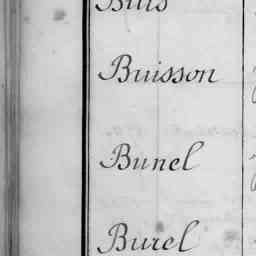 Buisson
Bunel
Burel